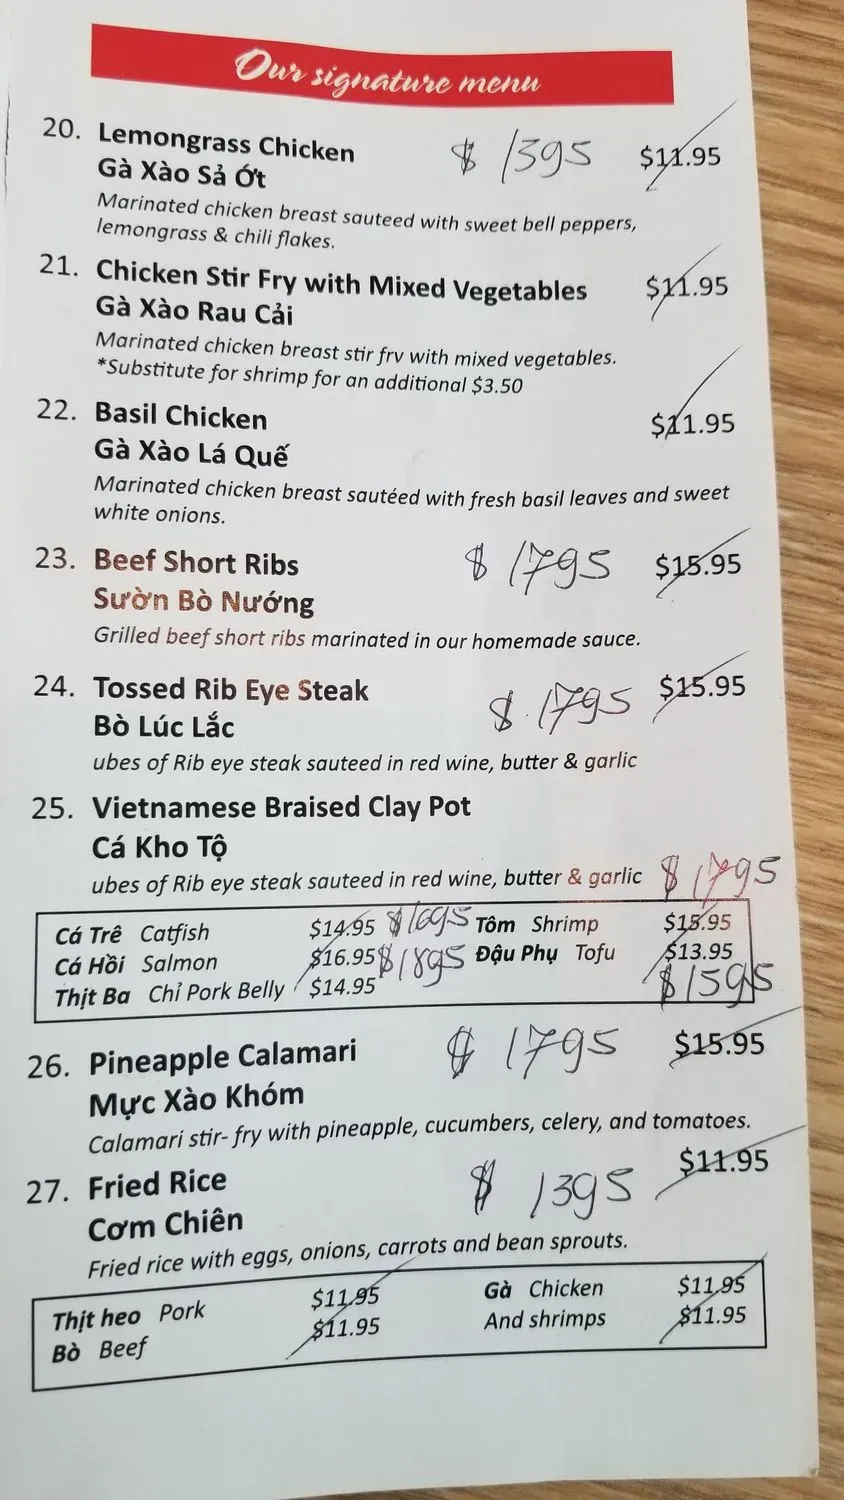 Our signature menu
20. Lemongrass Chicken $1395 $11.95
Gà Xào Sả Ớt
Marinated chicken breast sauteed with sweet bell peppers,
lemongrass & chili flakes.
21. Chicken Stir Fry with Mixed Vegetables $11.95
Gà Xào Rau Cải
Marinated chicken breast stir frv with mixed vegetables.
*Substitute for shrimp for an additional $3.50
22. Basil Chicken $11.95
Gà Xào Lá Quế
Marinated chicken breast sautéed with fresh basil leaves and sweet
white onions.
23. Beef Short Ribs $1795 $15.95
Sườn Bò Nướng
Grilled beef short ribs marinated in our homemade sauce.
24. Tossed Rib Eye Steak $1795 $15.95
Bò Lúc Lắc
ubes of Rib eye steak sauteed in red wine, butter & garlic
25. Vietnamese Braised Clay Pot
Cá Kho Tộ
ubes of Rib eye steak sauteed in red wine, butter & garlic $1795
Cá Trê Catfish $14.95 $1695 Tôm Shrimp $15.95
Cá Hồi Salmon $16.95 $1895 Đậu Phụ Tofu $13.95
Thịt Ba Chỉ Pork Belly $14.95 $1595
26. Pineapple Calamari $1795 $15.95
Mực Xào Khóm
Calamari stir- fry with pineapple, cucumbers, celery, and tomatoes.
27. Fried Rice $1395 $11.95
Cơm Chiên
Fried rice with eggs, onions, carrots and bean sprouts.
Thịt heo Pork $11.95 Gà Chicken $11.95
Bò Beef $11.95 And shrimps $11.95